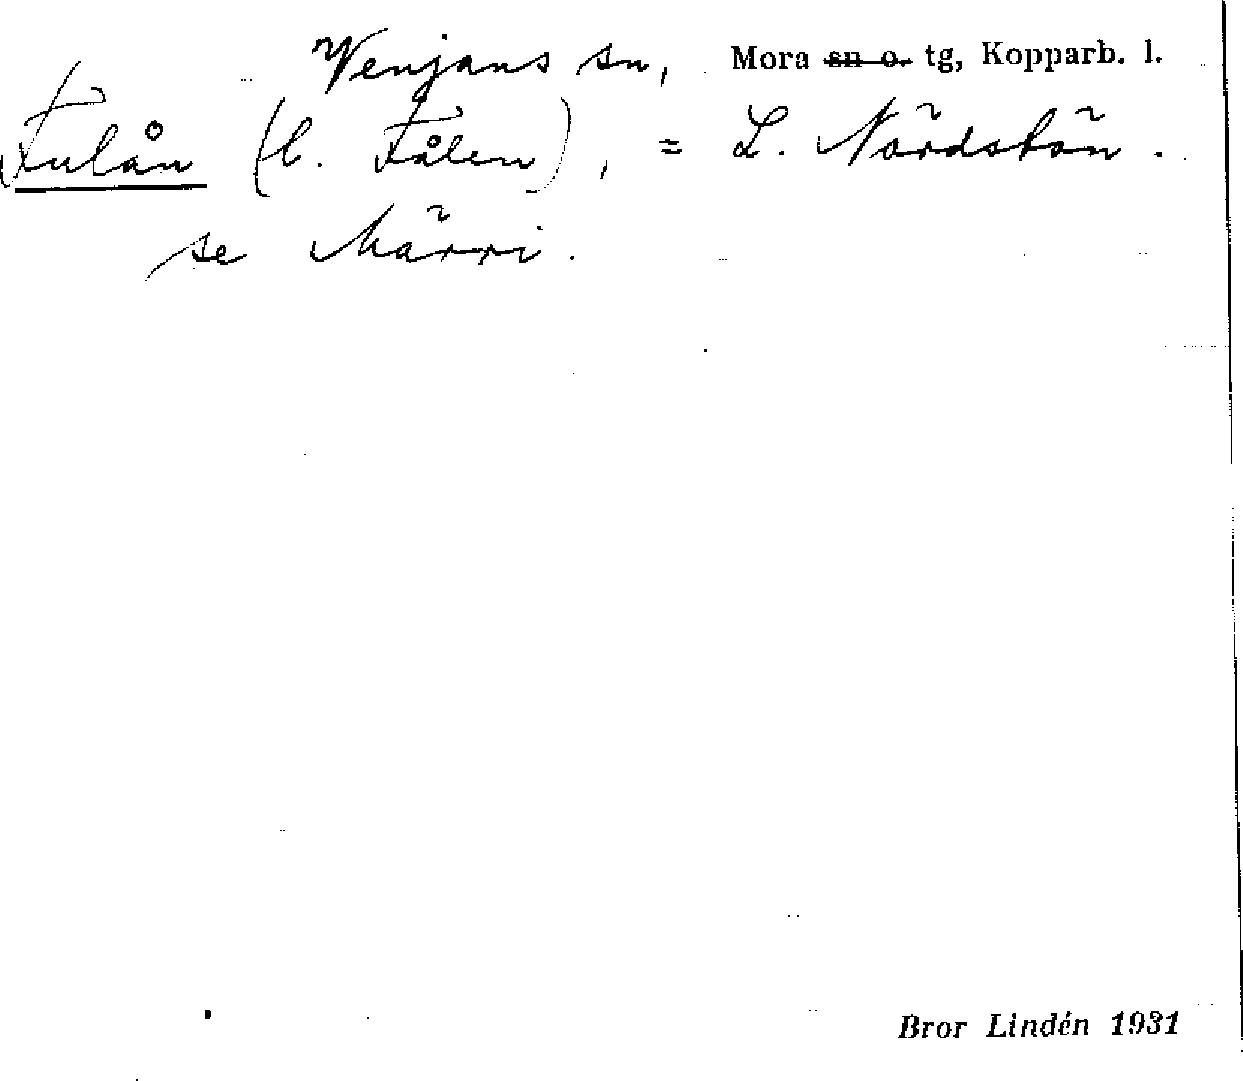 Venjans sn, Mora ~~sn o.~~ tg, Kopparb. l.
Fulån (l. Fålen), = L. Närdstän.
se Märri.
Bror Lindén 1931